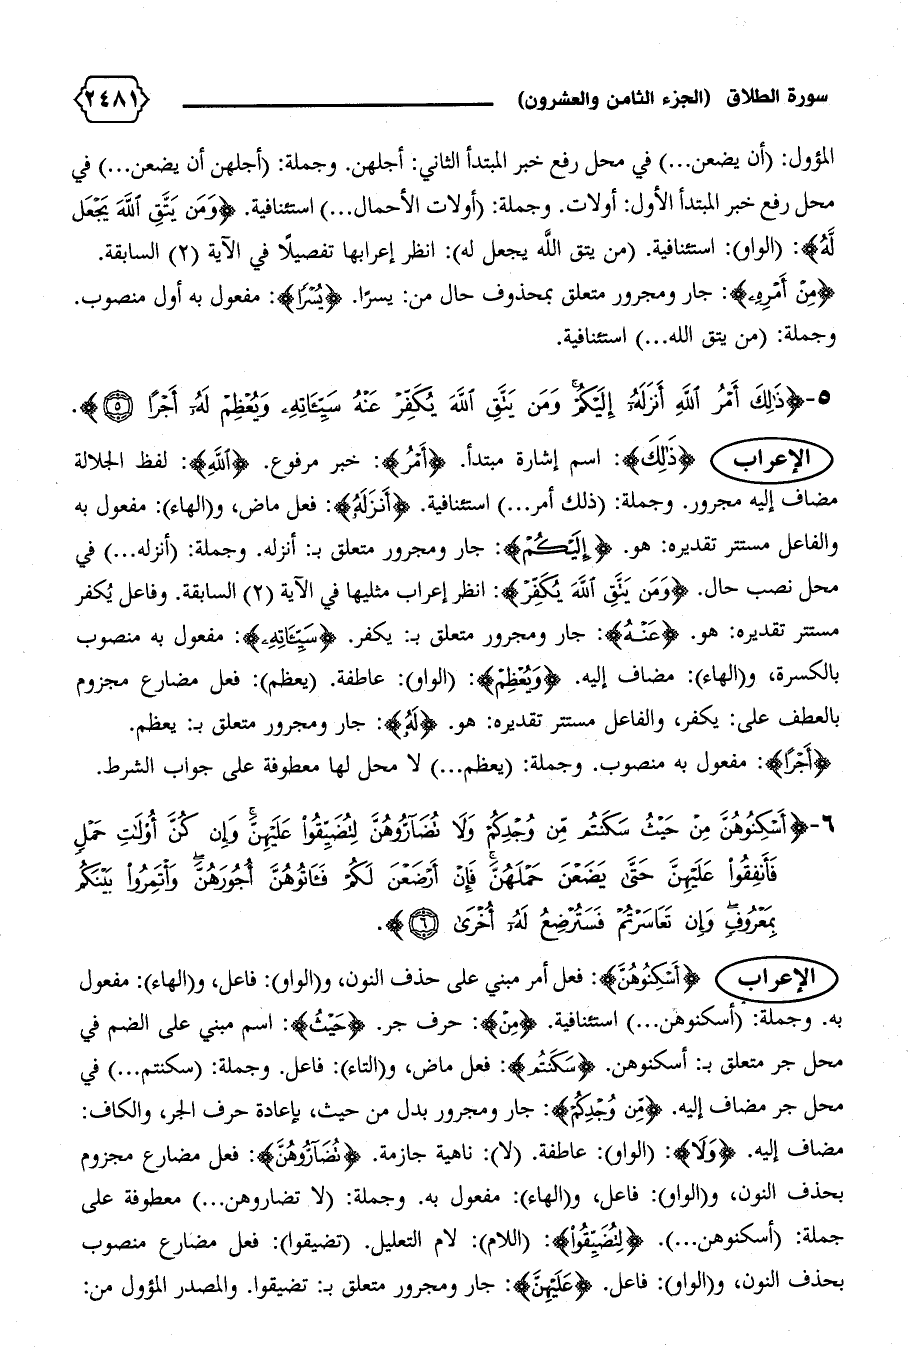 سورة الطلاق (الجزء الثامن والعشرون) ٢٤٨١
المؤول: (أن يضعن...) في محل رفع خبر المبتدأ الثاني: أجلهن. وجملة: (أجلهن أن يضعن...) في
محل رفع خبر المبتدأ الأول: أولات. وجملة: (أولات الأحمال...) استئنافية. ﴿وَمَن يَتَّقِ ٱللَّهَ يَجْعَل
لَّهُۥ﴾: (الواو): استئنافية. (من يتق اللَّه يجعل له): انظر إعرابها تفصيلًا في الآية (٢) السابقة.
﴿مِنْ أَمْرِهِۦ﴾: جار ومجرور متعلق بمحذوف حال من: يسرًا. ﴿يُسْرًا﴾: مفعول به أول منصوب.
وجملة: (من يتق الله...) استئنافية.
٥-﴿ذَٰلِكَ أَمْرُ ٱللَّهِ أَنزَلَهُۥٓ إِلَيْكُمْ ۚ وَمَن يَتَّقِ ٱللَّهَ يُكَفِّرْ عَنْهُ سَيِّـَٔاتِهِۦ وَيُعْظِمْ لَهُۥٓ أَجْرًا ٥﴾.
الإعراب ﴿ذَٰلِكَ﴾: اسم إشارة مبتدأ. ﴿أَمْرُ﴾: خبر مرفوع. ﴿ٱللَّهِ﴾: لفظ الجلالة
مضاف إليه مجرور. وجملة: (ذلك أمر...) استئنافية. ﴿أَنزَلَهُۥٓ﴾: فعل ماض، و(الهاء): مفعول به
والفاعل مستتر تقديره: هو. ﴿إِلَيْكُمْ﴾: جار ومجرور متعلق بـ: أنزله. وجملة: (أنزله...) في
محل نصب حال. ﴿وَمَن يَتَّقِ ٱللَّهَ يُكَفِّرْ﴾: انظر إعراب مثليها في الآية (٢) السابقة. وفاعل يُكفر
مستتر تقديره: هو. ﴿عَنْهُ﴾: جار ومجرور متعلق بـ: يكفر. ﴿سَيِّـَٔاتِهِۦ﴾: مفعول به منصوب
بالكسرة، و(الهاء): مضاف إليه. ﴿وَيُعْظِمْ﴾: (الواو): عاطفة. (يعظم): فعل مضارع مجزوم
بالعطف على: يكفر، والفاعل مستتر تقديره: هو. ﴿لَهُۥٓ﴾: جار ومجرور متعلق بـ: يعظم.
﴿أَجْرًا﴾: مفعول به منصوب. وجملة: (يعظم...) لا محل لها معطوفة على جواب الشرط.
٦-﴿أَسْكِنُوهُنَّ مِنْ حَيْثُ سَكَنتُم مِّن وُجْدِكُمْ وَلَا تُضَآرُّوهُنَّ لِتُضَيِّقُوا۟ عَلَيْهِنَّ ۚ وَإِن كُنَّ أُو۟لَـٰتِ حَمْلٍ
فَأَنفِقُوا۟ عَلَيْهِنَّ حَتَّىٰ يَضَعْنَ حَمْلَهُنَّ ۚ فَإِنْ أَرْضَعْنَ لَكُمْ فَـَٔاتُوهُنَّ أُجُورَهُنَّ ۖ وَأْتَمِرُوا۟ بَيْنَكُم
بِمَعْرُوفٍ ۖ وَإِن تَعَاسَرْتُمْ فَسَتُرْضِعُ لَهُۥٓ أُخْرَىٰ ٦﴾.
الإعراب ﴿أَسْكِنُوهُنَّ﴾: فعل أمر مبني على حذف النون، و(الواو): فاعل، و(الهاء): مفعول
به. وجملة: (أسكنوهن...) استئنافية. ﴿مِنْ﴾: حرف جر. ﴿حَيْثُ﴾: اسم مبني على الضم في
محل جر متعلق بـ: أسكنوهن. ﴿سَكَنتُم﴾: فعل ماض، و(التاء): فاعل. وجملة: (سكنتم...) في
محل جر مضاف إليه. ﴿مِّن وُجْدِكُمْ﴾: جار ومجرور بدل من حيث، بإعادة حرف الجر، والكاف:
مضاف إليه. ﴿وَلَا﴾: (الواو): عاطفة. (لا): ناهية جازمة. ﴿تُضَآرُّوهُنَّ﴾: فعل مضارع مجزوم
بحذف النون، و(الواو): فاعل، و(الهاء): مفعول به. وجملة: (لا تضاروهن...) معطوفة على
جملة: (أسكنوهن...). ﴿لِتُضَيِّقُوا۟﴾: (اللام): لام التعليل. (تضيقوا): فعل مضارع منصوب
بحذف النون، و(الواو): فاعل. ﴿عَلَيْهِنَّ﴾: جار ومجرور متعلق بـ: تضيقوا. والمصدر المؤول من: